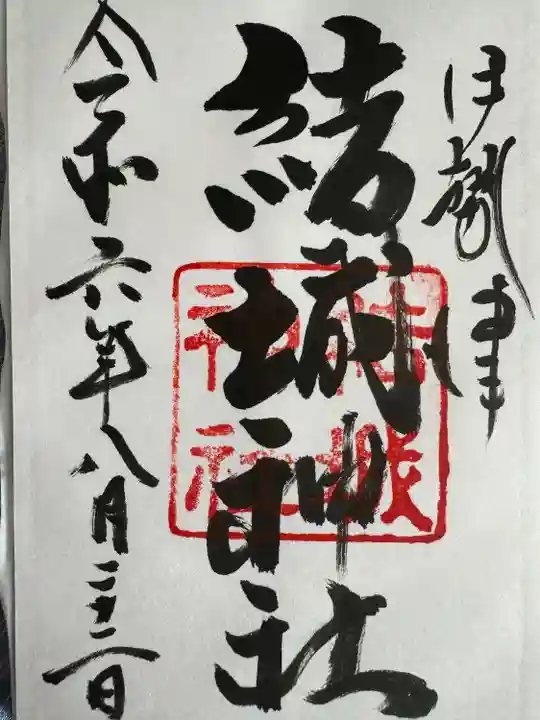 伊勢津
結城神社
結城神社
令和六年八月二十二日